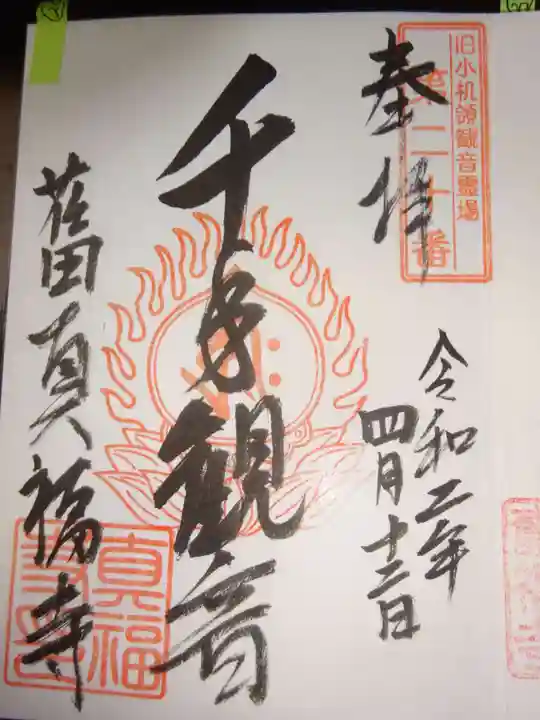 旧小机領観音霊場
第二十番
奉拝
令和二年
四月十三日
千手観音
荏田真福寺
真福
寺印